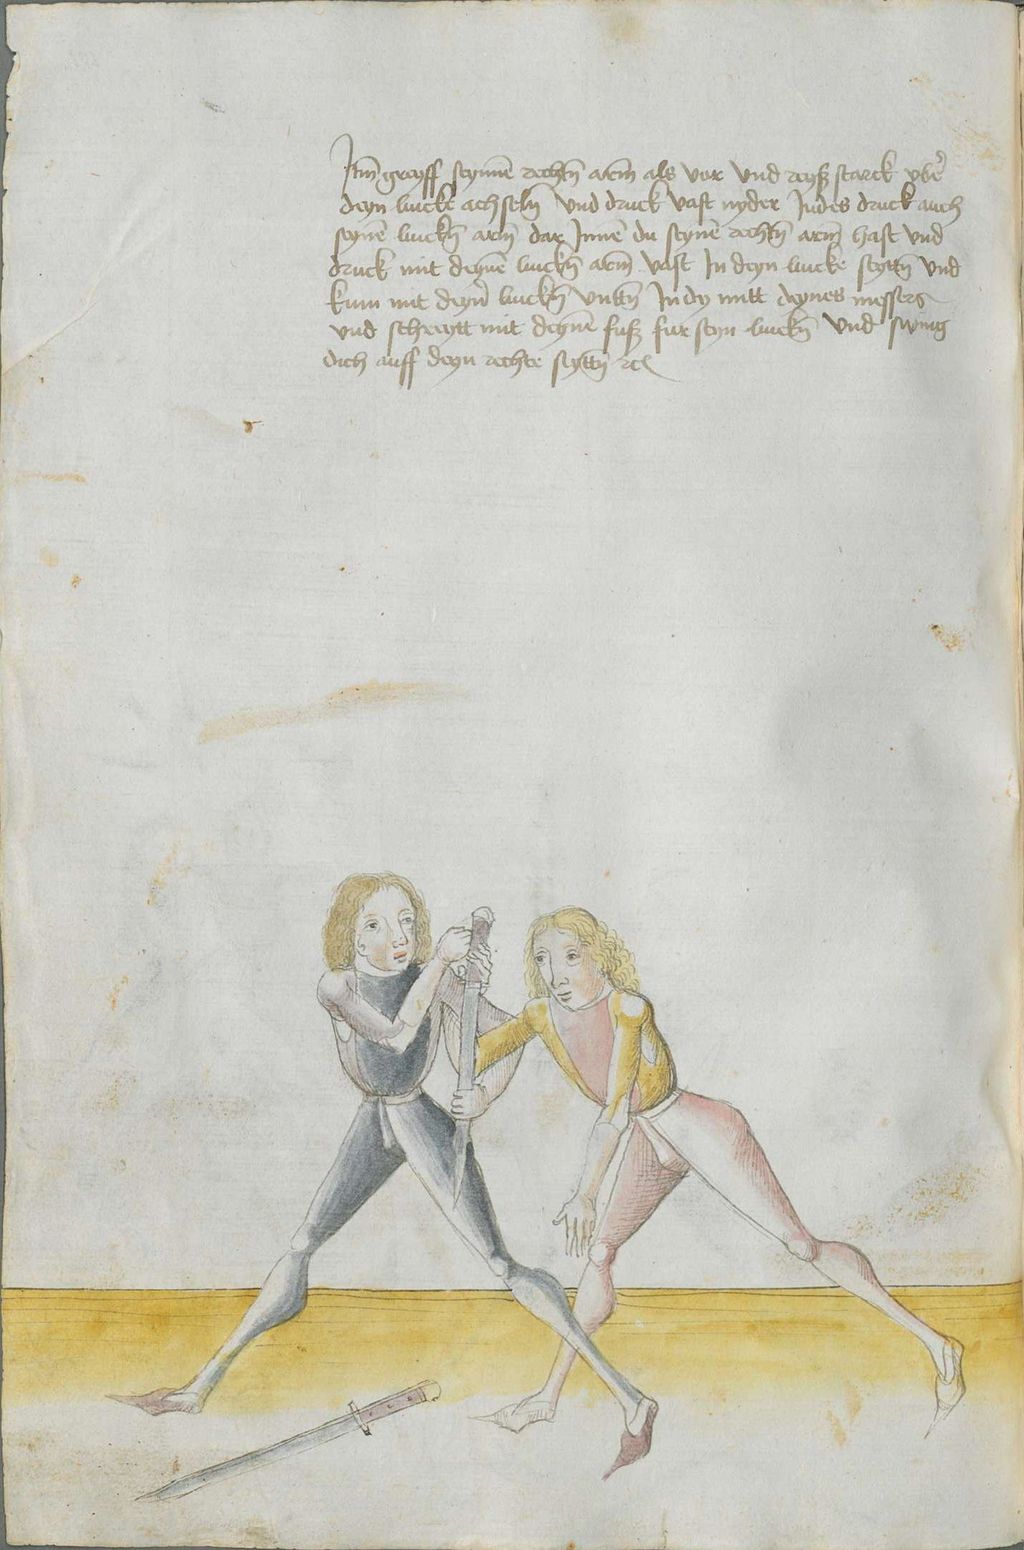 Itm̄ greyff seynnē rechtn̄ arm̄ als vor vnd reyß starck vbe᷑
deyn lincke achseln̄ vnd druck vast nyder Indes druck auch
seynē linckn̄ arm̄ dar Innē du seynē rechtn̄ arm̄ hast vnd
druck mit deynē linckn̄ arm̄ vast In deyn lincke seyttn̄ vnd
kum mit deyne᷑ linckn̄ vnttn̄ In dy mitt deynes messers
vnd schreytt mit deynē fuß fur seyn linckn̄ vnd swing
dich auff deyn rechte seyttn̄ rc